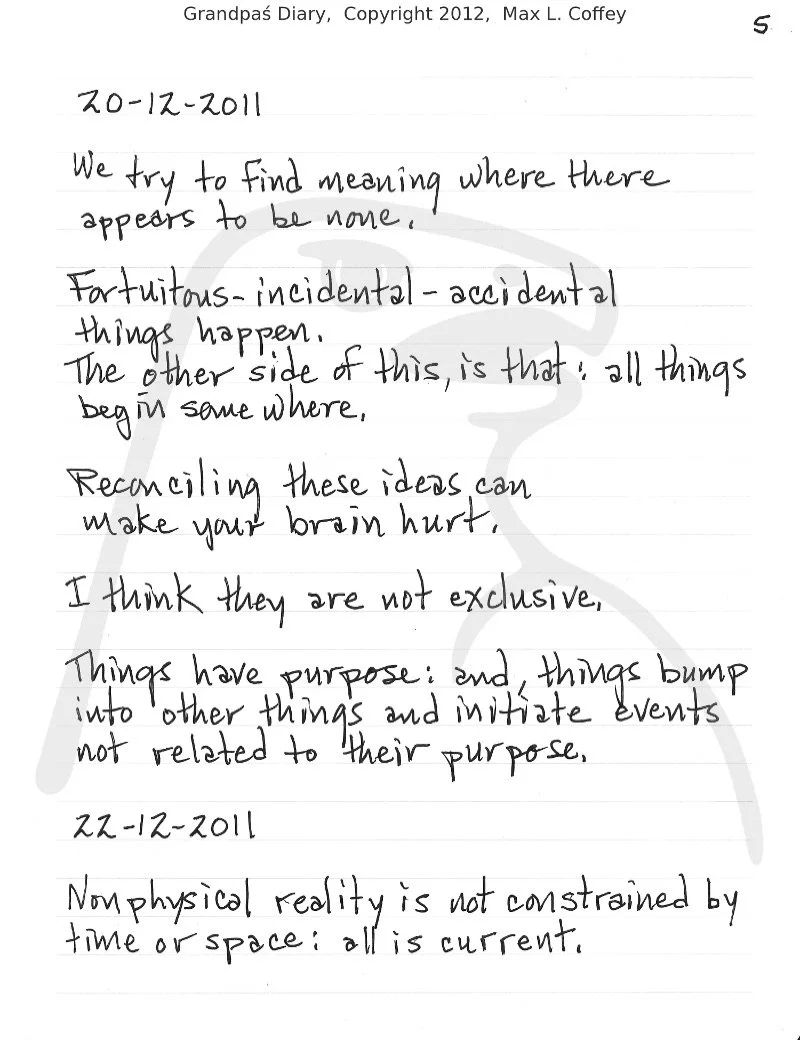 Grandpaś Diary, Copyright 2012, Max L. Coffey
5
20-12-2011
We try to find meaning where there
appears to be none.
Fortuitous-incidental-accidental
things happen.
The other side of this, is that: all things
begin somewhere.
Reconciling these ideas can
make your brain hurt.
I think they are not exclusive.
Things have purpose: and, things bump
into other things and initiate events
not related to their purpose.
22-12-2011
Nonphysical reality is not constrained by
time or space: all is current.